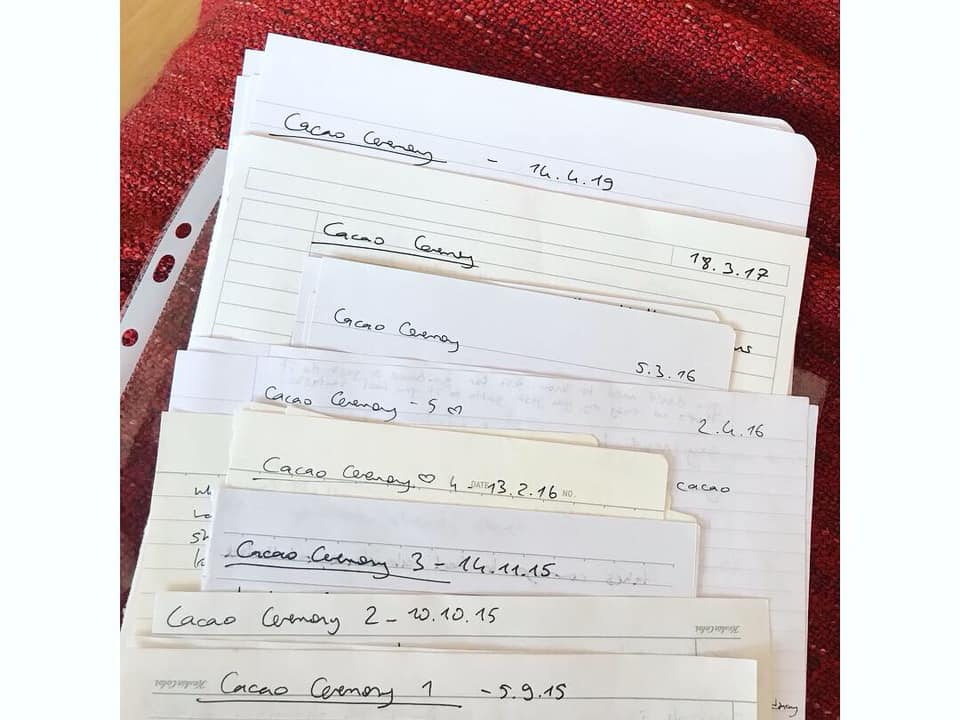 Cacao Ceremony - 14.4.19
Cacao Ceremony 18.3.17
Cacao Ceremony
5.3.16
Cacao Ceremony - 5 ♡
2.4.16
Cacao Ceremony ♡ 4 - DATE 13.2.16 NO.
cacao
Cacao Ceremony 3 - 14.11.15.
Cacao Ceremony 2 - 10.10.15
Cacao Ceremony 1 - 5.9.15